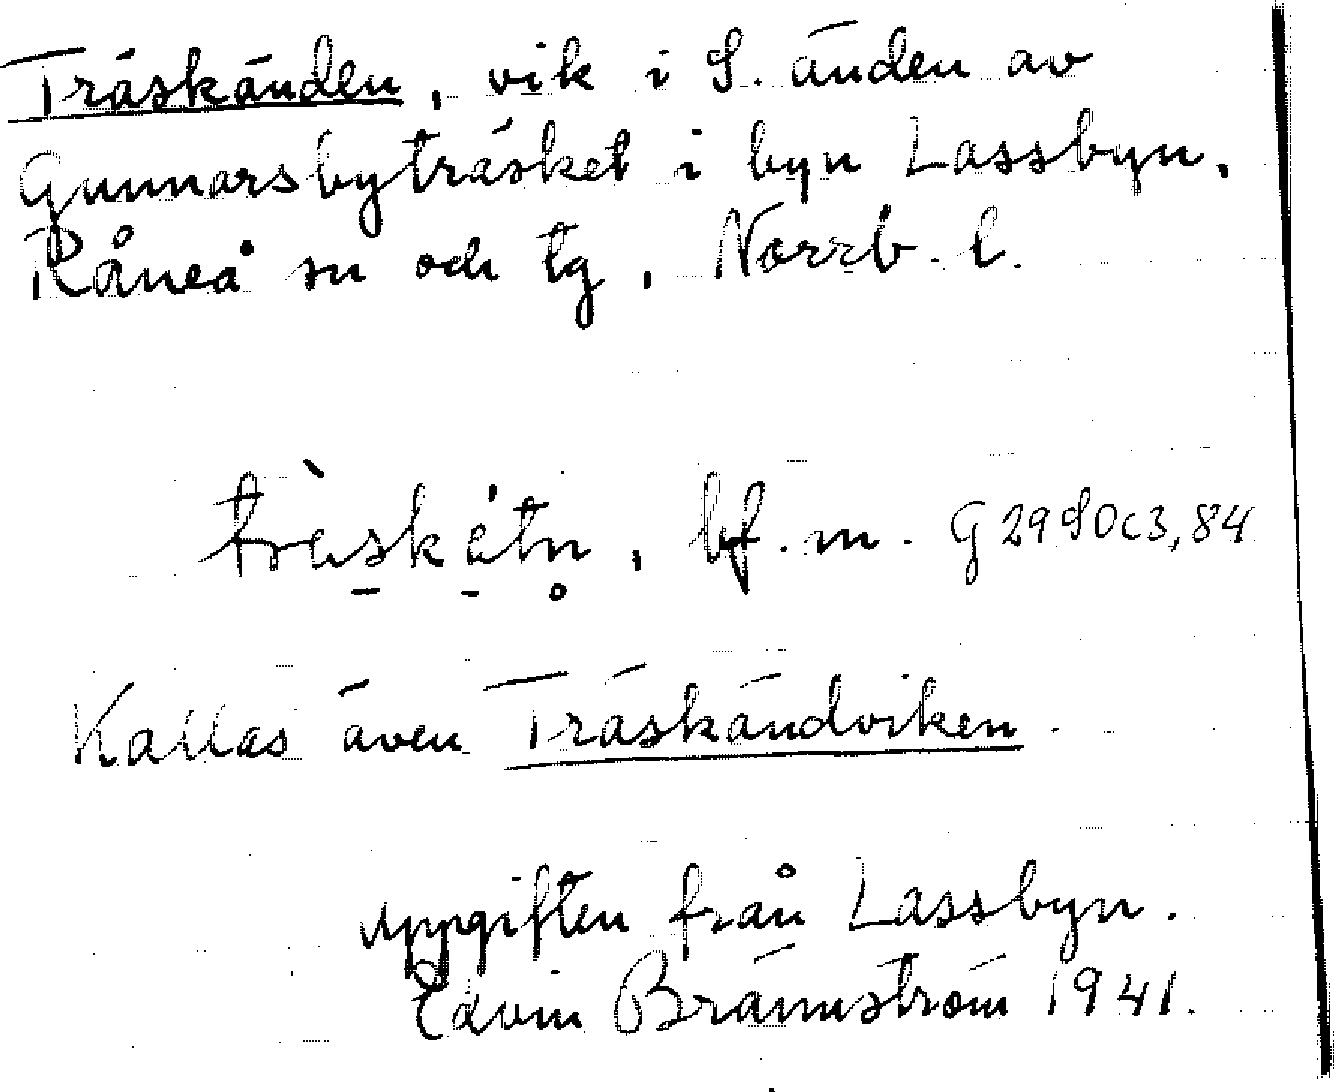 Träskänden, vik i S. änden av
Gunnarsbyträsket i byn Lassbyn,
Råneå sn och tg, Norrb. l.
bf. m. G 29 S0c3,84
Kallas även Träskändviken.
uppgiften från Lassbyn.
Edvin Brännström 1941.